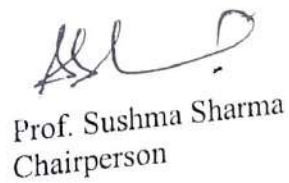 Prof. Sushma Sharma
Chairperson